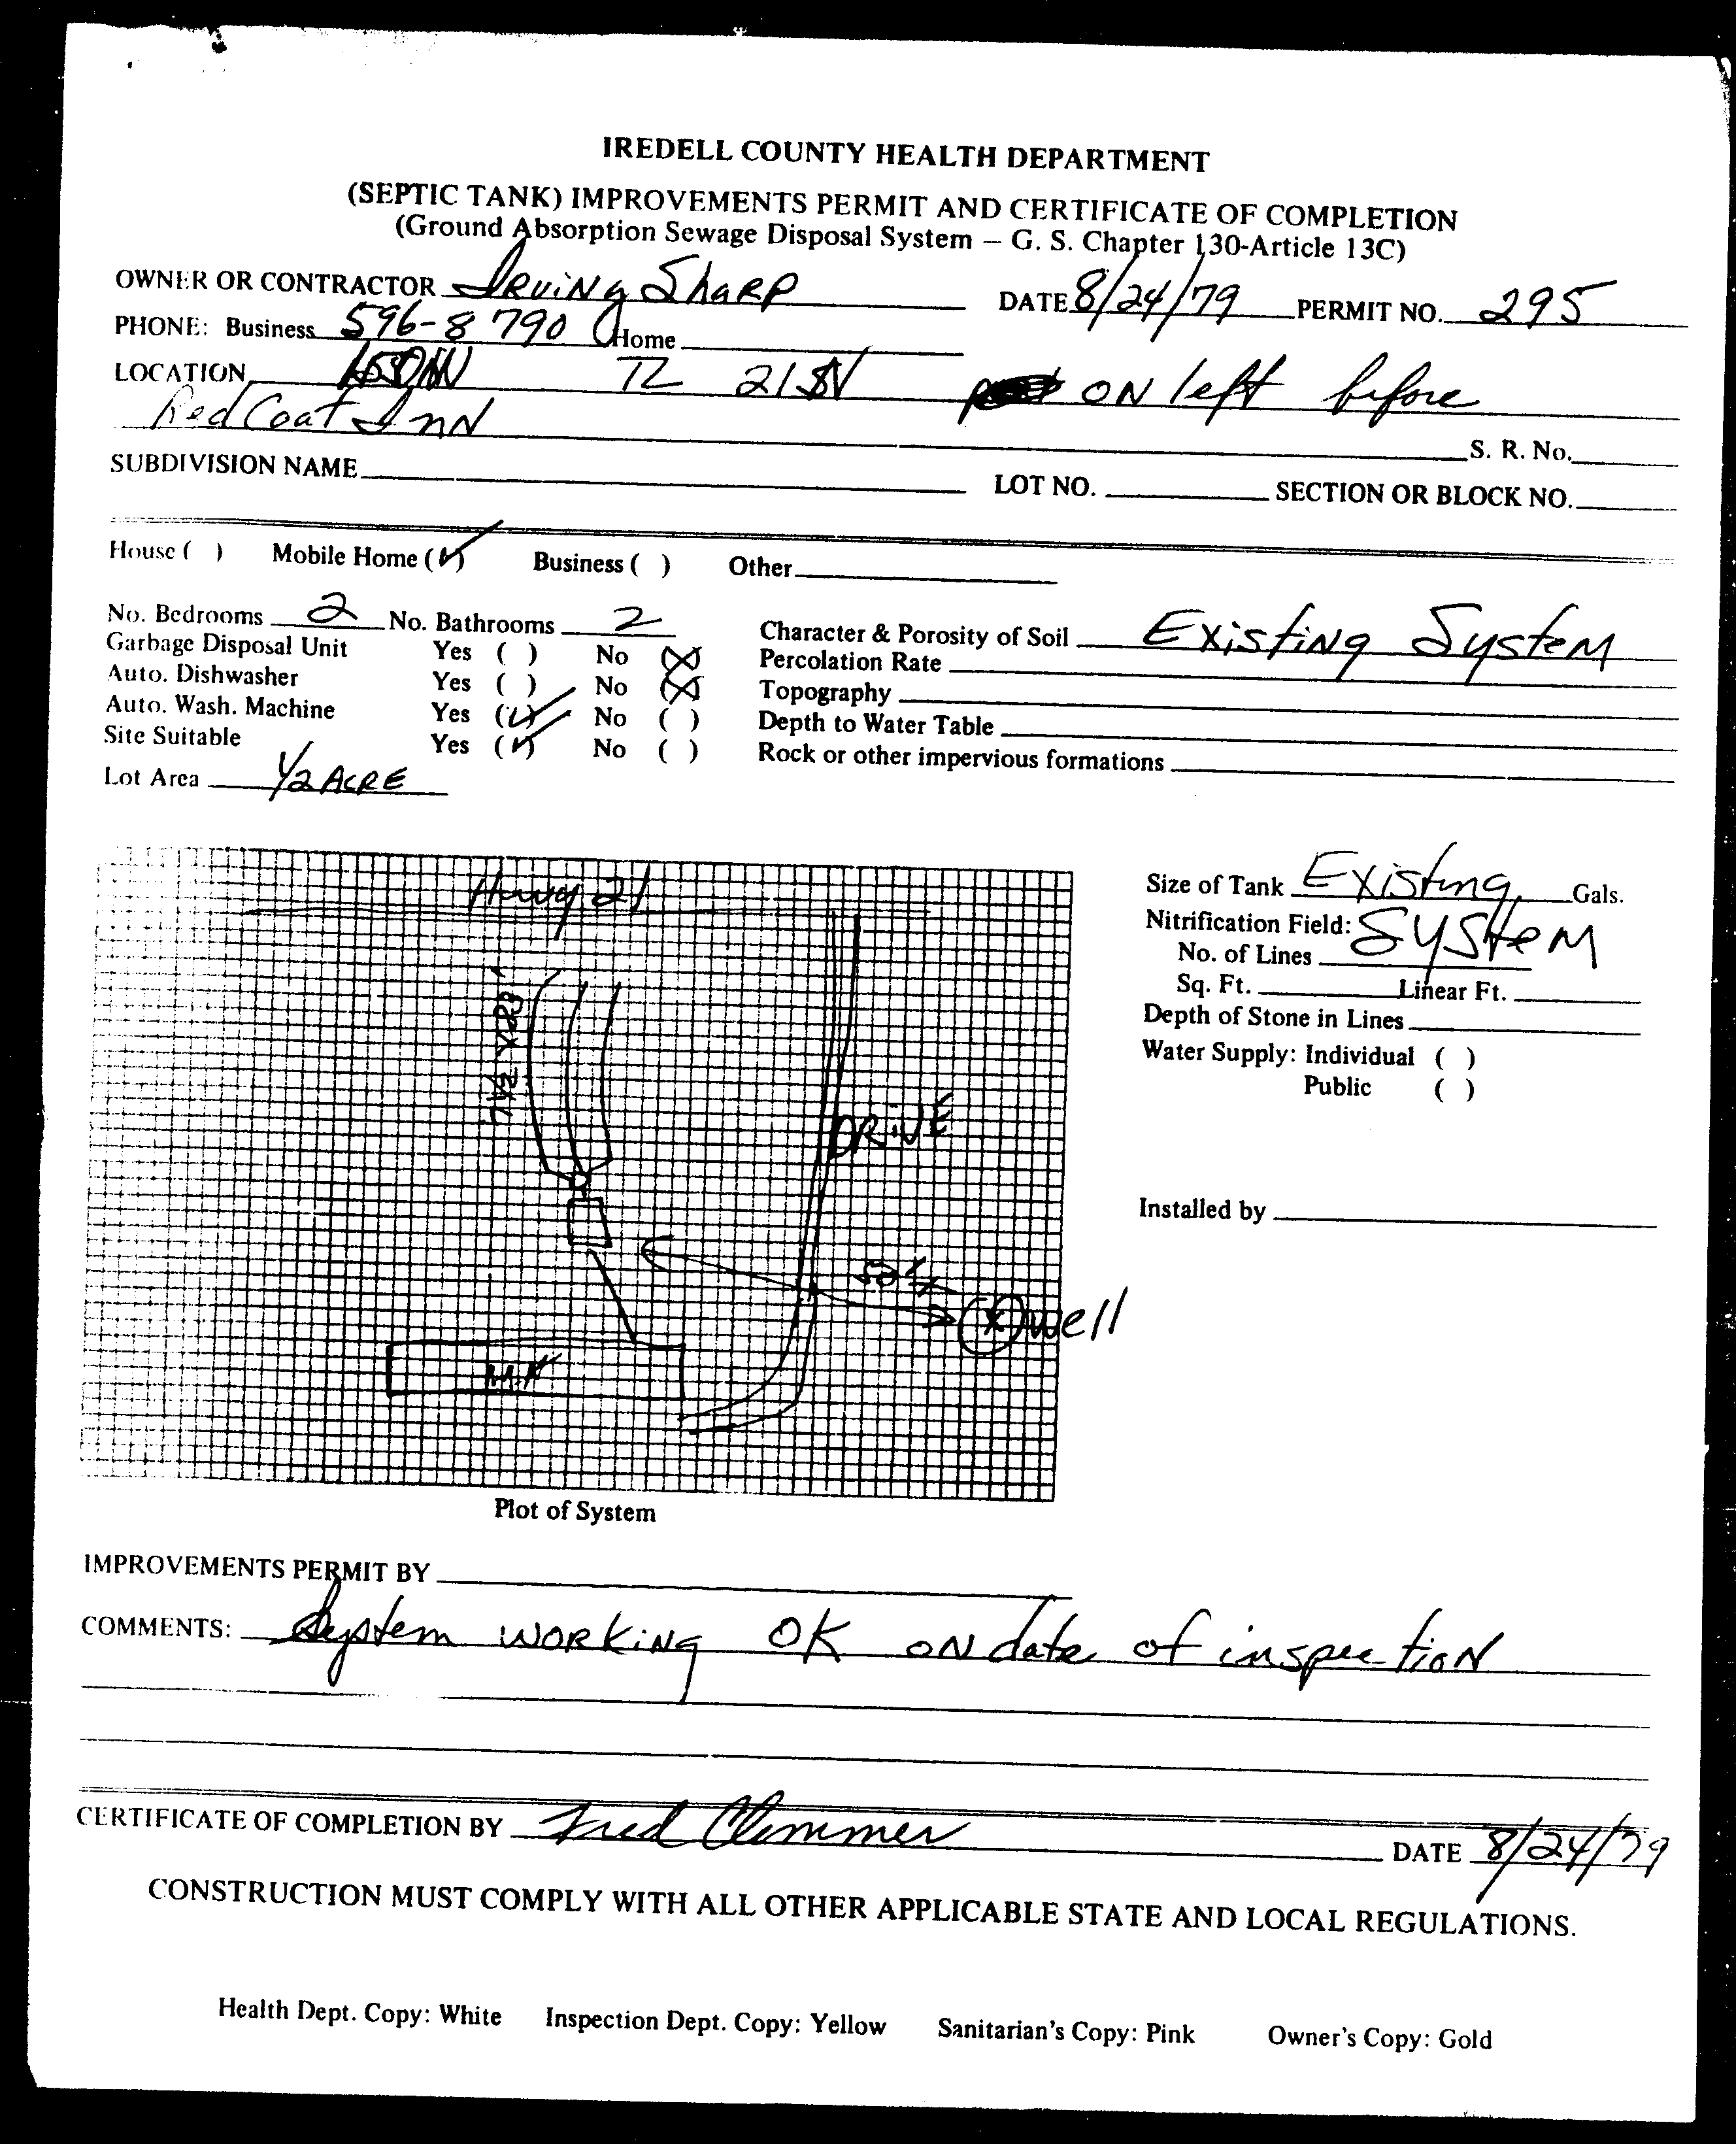 IREDELL COUNTY HEALTH DEPARTMENT
(SEPTIC TANK) IMPROVEMENTS PERMIT AND CERTIFICATE OF COMPLETION
(Ground Absorption Sewage Disposal System – G. S. Chapter 130-Article 13C)
OWNER OR CONTRACTOR Irving Sharp DATE 8/24/79 PERMIT NO. 295
PHONE: Business 596-8790 Home
LOCATION TL ON left before
Red Coat Inn
S. R. No.
SUBDIVISION NAME LOT NO. SECTION OR BLOCK NO.
House ( ) Mobile Home (✓) Business ( ) Other
No. Bedrooms 2 No. Bathrooms 2 Character & Porosity of Soil Existing System
Garbage Disposal Unit Yes ( ) No (X) Percolation Rate
Auto. Dishwasher Yes ( ) No (X) Topography
Auto. Wash. Machine Yes (✓) No ( ) Depth to Water Table
Site Suitable Yes (✓) No ( ) Rock or other impervious formations
Lot Area 1/2 ACRE
Hwy 21
DRIVE
well
M.H
Plot of System
Size of Tank Existing Gals.
Nitrification Field: System
No. of Lines
Sq. Ft. Linear Ft.
Depth of Stone in Lines
Water Supply: Individual ( )
Public ( )
Installed by
IMPROVEMENTS PERMIT BY
COMMENTS: System working OK on date of inspection
CERTIFICATE OF COMPLETION BY Fred Clemmer DATE 8/24/79
CONSTRUCTION MUST COMPLY WITH ALL OTHER APPLICABLE STATE AND LOCAL REGULATIONS.
Health Dept. Copy: White Inspection Dept. Copy: Yellow Sanitarian's Copy: Pink Owner's Copy: Gold